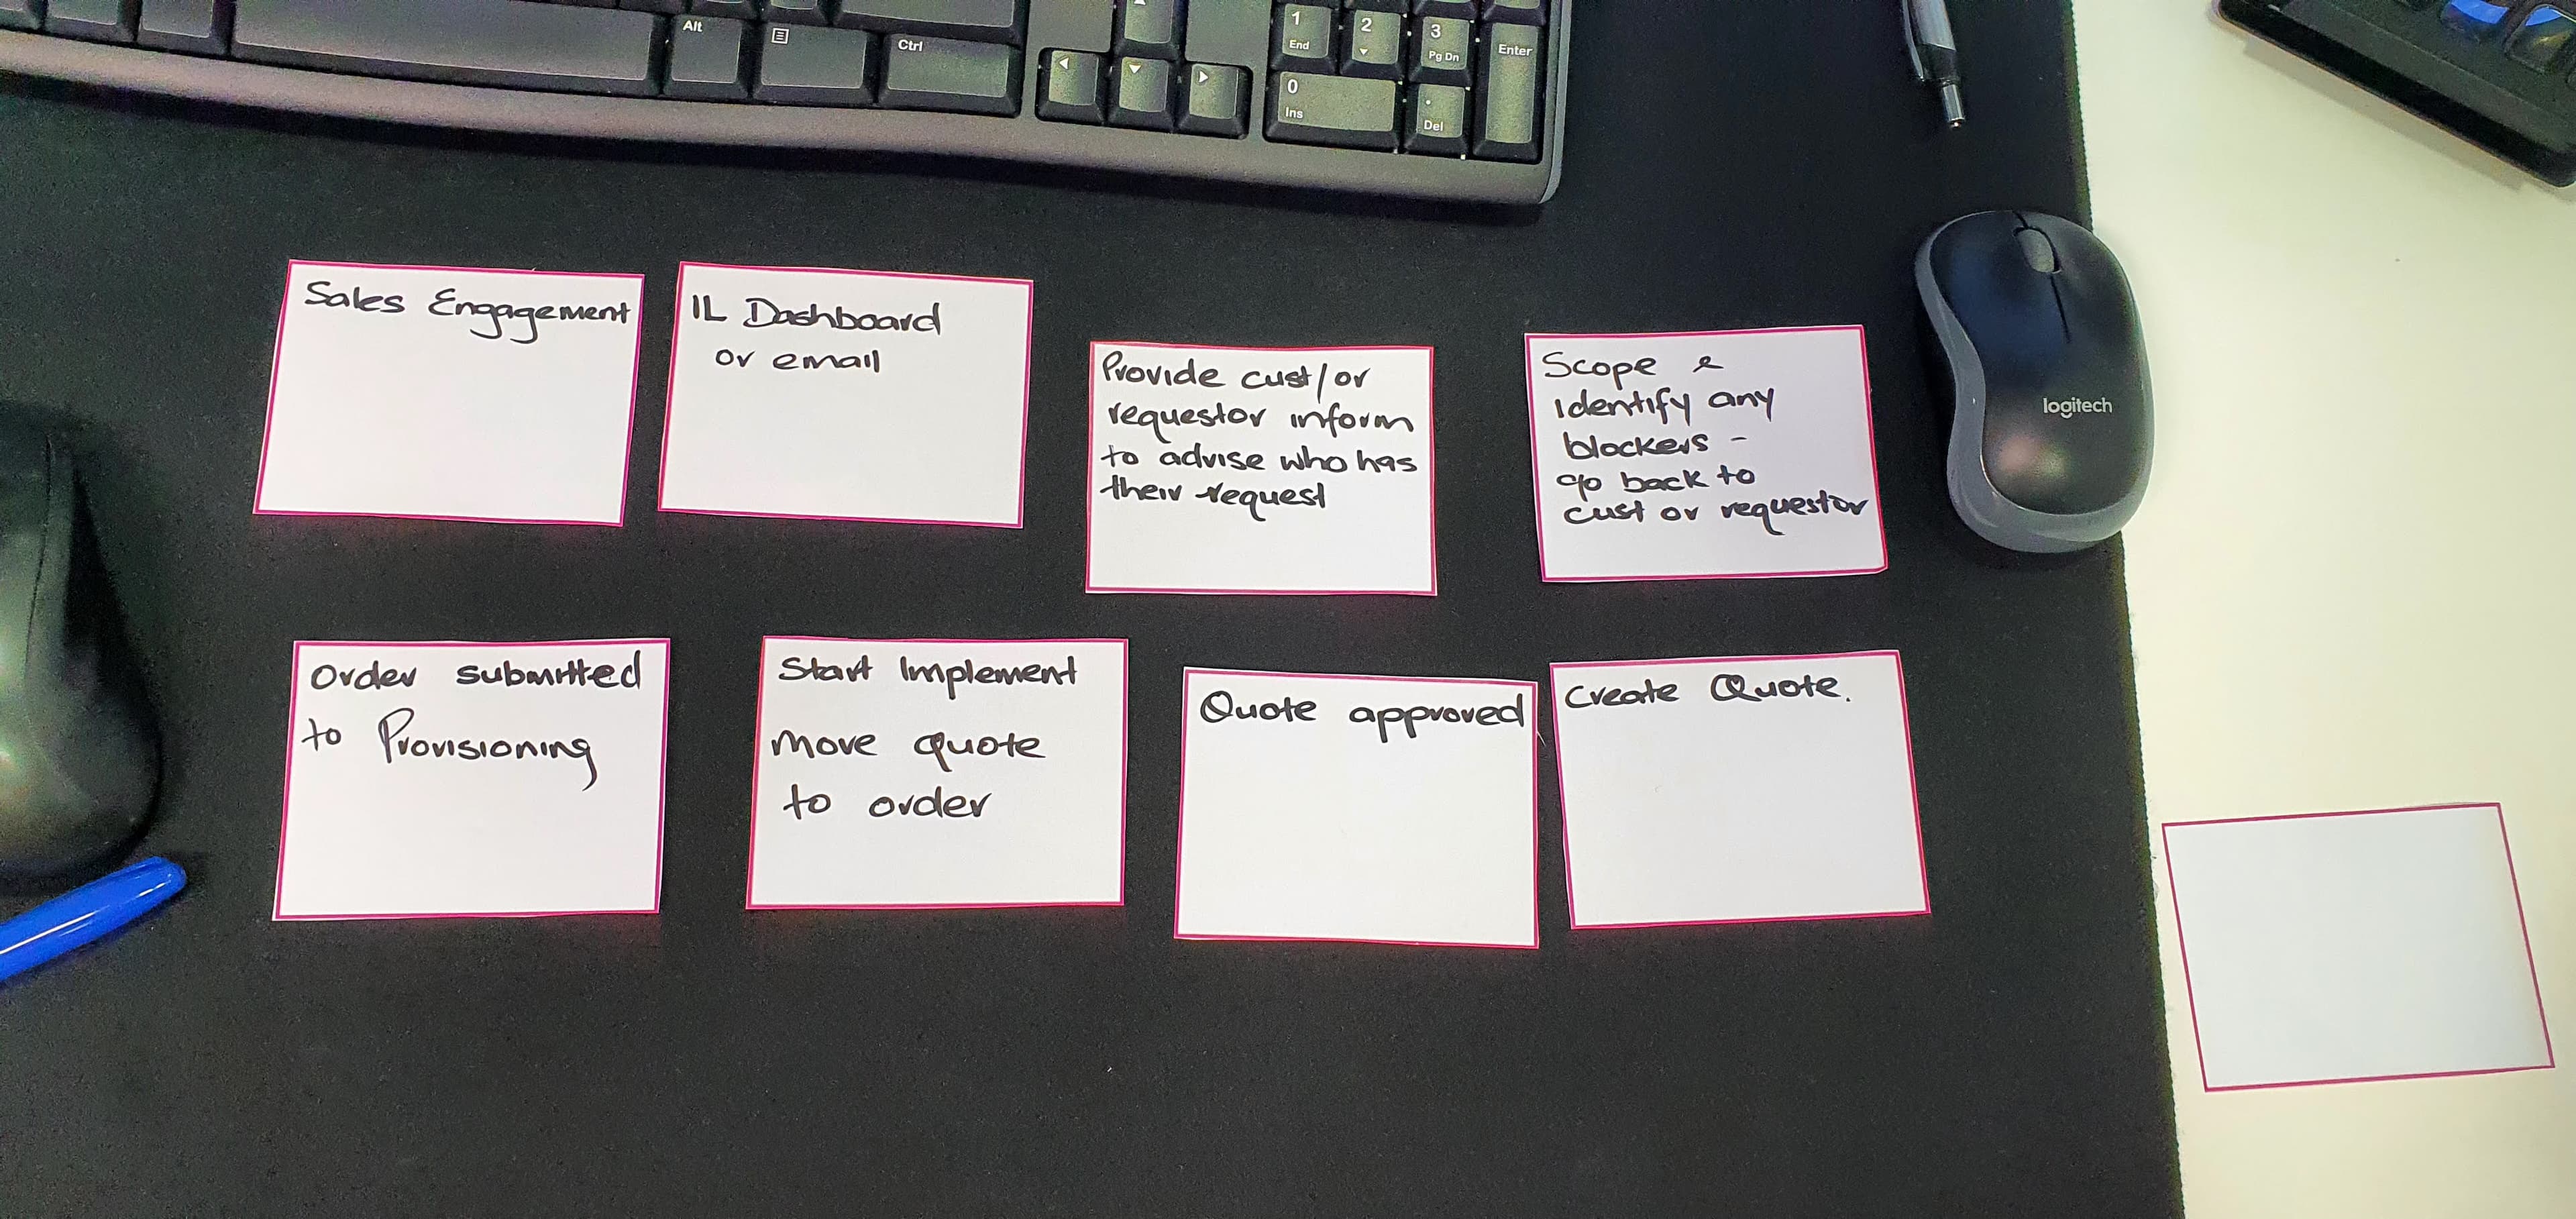 Alt
Ctrl
1
End
2
3
Pg Dn
Enter
0
Ins
.
Del
logitech
Sales Engagement
IL Dashboard
or email
Provide cust/or
requestor inform
to advise who has
their request
Scope &
identify any
blockers -
go back to
cust or requestor
Order submitted
to Provisioning
Start Implement
move quote
to order
Quote approved
Create Quote.